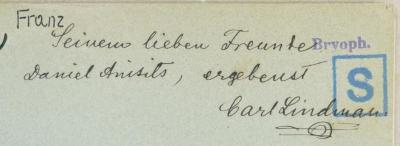 Franz
Seinem lieben Freunde Bryoph.
Daniel Anisits, ergebenst S
Carl Lindman.